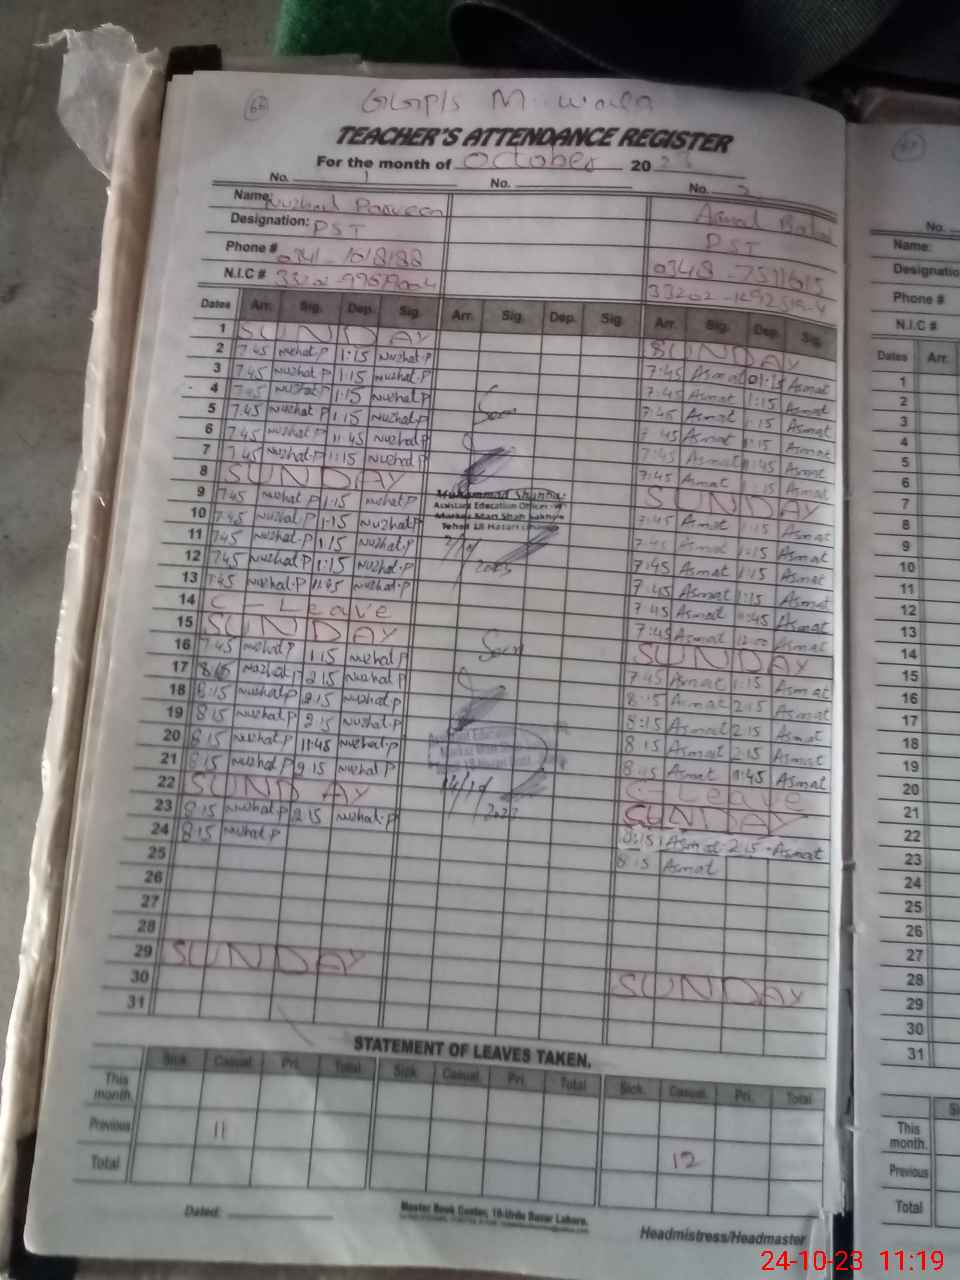 66
GGPS M. wala
TEACHER'S ATTENDANCE REGISTER
For the month of October 20 23
No. 1 No. No. 2
Name: Nuzhat Parveen Asmat
Designation: PST PST
Phone # 0341 - 1018188 0348 - 7511615
N.I.C # 33202
Dates Arr. Sig. Dep. Sig. Arr. Sig. Dep. Sig. Arr. Sig. Dep. Sig.
1 SUNDAY SUNDAY
2 7.45 Nuzhat.P 1:15 Nuzhat.P 7:45 Asmat 01:15 Asmat
3 7.45 Nuzhat.P 1:15 Nuzhat.P 7:45 Asmat 1:15 Asmat
4 7.45 Nuzhat.P 1:15 Nuzhat.P Seen 7:45 Asmat 1:15 Asmat
5 7.45 Nuzhat.P 1:15 Nuzhat.P 7:45 Asmat 1:15 Asmat
6 7.45 Nuzhat.P 11:45 Nuzhat.P 7:45 Asmat 11:45 Asmat
7 7.45 Nuzhat.P 1:15 Nuzhat.P 7:45 Asmat 1:15 Asmat
8 SUNDAY SUNDAY
Muhammad
Assistant Education Officer
Markaz Mari Shah Sakhira
Tehsil 18 Hazari
9 7.45 Nuzhat.P 1:15 Nuzhat.P 7:45 Asmat 1:15 Asmat
10 7.45 Nuzhat.P 1:15 Nuzhat.P 7:45 Asmat 1:15 Asmat
11 7.45 Nuzhat.P 1:15 Nuzhat.P 7:45 Asmat 1:15 Asmat
12 7.45 Nuzhat.P 1:15 Nuzhat.P 2023 7:45 Asmat 1:15 Asmat
13 7.45 Nuzhat.P 11:45 Nuzhat.P 7:45 Asmat 11:45 Asmat
14 C - Leave 7:45 Asmat 12:00 Asmat
15 SUNDAY SUNDAY
16 7.45 Nuzhat P 1:15 Nuzhat P Seen 7:45 Asmat 1:15 Asmat
17 8:15 Nuzhat.P 2:15 Nuzhat P 8:15 Asmat 2:15 Asmat
18 8:15 Nuzhat P 2:15 Nuzhat.P 8:15 Asmat 2:15 Asmat
19 8:15 Nuzhat P 2:15 Nuzhat.P 8:15 Asmat 2:15 Asmat
20 8:15 Nuzhat.P 11:45 Nuzhat.P Asmat 11:45 Asmat
21 8:15 Nuzhat.P 2:15 Nuzhat.P C - Leave
22 SUNDAY 2023 SUNDAY
23 8:15 Nuzhat.P 2:15 Nuzhat.P 8:15 Asmat 2:15 Asmat
24 8:15 Nuzhat.P 8:15 Asmat
25
26
27
28
29 SUNDAY SUNDAY
30
31
STATEMENT OF LEAVES TAKEN.
Sick. Casual. Pri. Total Sick. Casual. Pri. Total Sick. Casual. Pri. Total
This month.
Previous 11
Total 12
Dated: Master Book Center, 18-Urdu Bazar Lahore.
Headmistress/Headmaster
No.
Name:
Designatio
Phone #
N.I.C #
Dates Arr.
1
2
3
4
5
6
7
8
9
10
11
12
13
14
15
16
17
18
19
20
21
22
23
24
25
26
27
28
29
30
31
This month.
Previous
Total
24-10-23 11:19